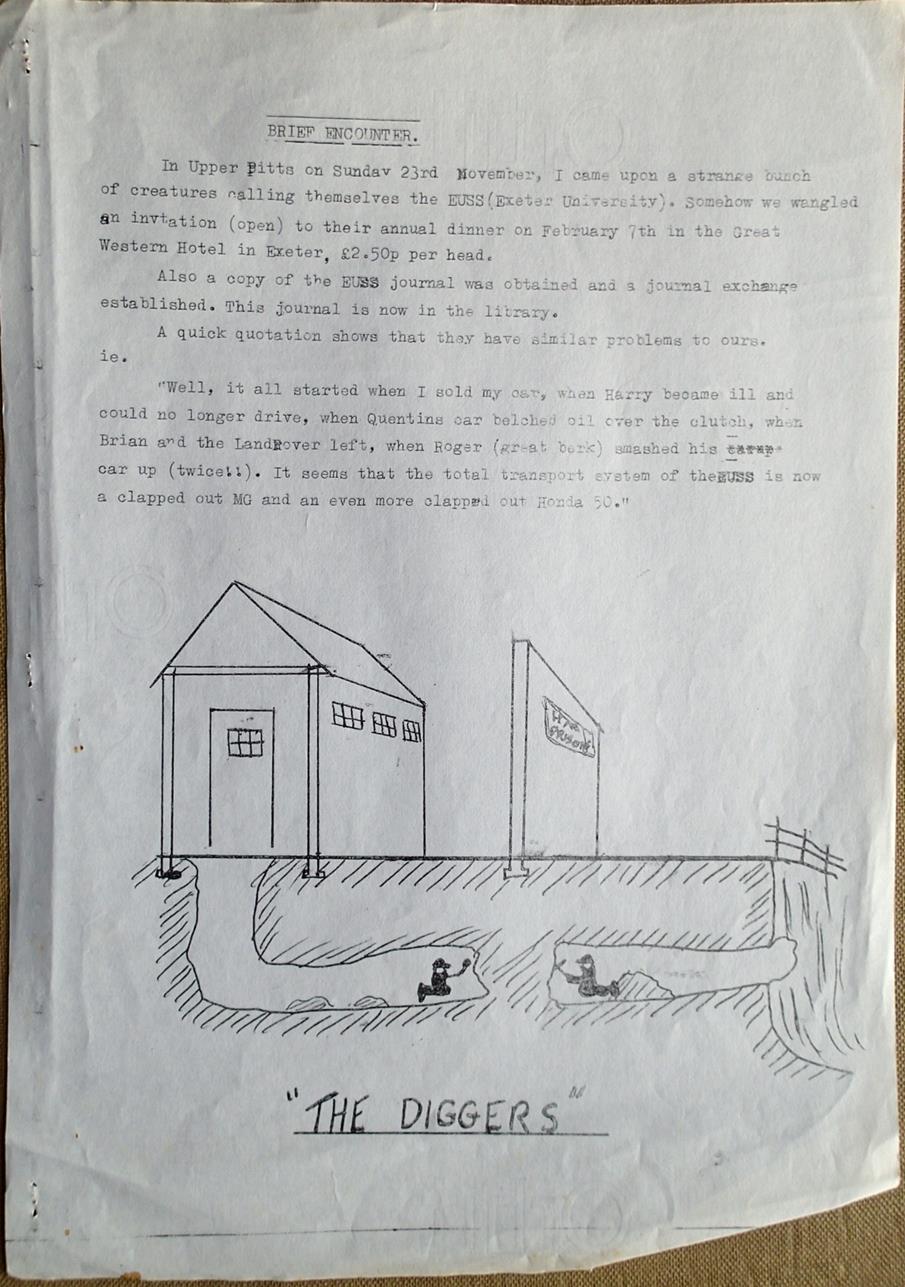 BRIEF ENCOUNTER.
In Upper Pitts on Sunday 23rd November, I came upon a strange bunch
of creatures calling themselves the EUSS(Exeter University). Somehow we wangled
an invtation (open) to their annual dinner on February 7th in the Great
Western Hotel in Exeter, £2.50p per head.
Also a copy of the EUSS journal was obtained and a journal exchange
established. This journal is now in the library.
A quick quotation shows that they have similar problems to ours.
ie.
"Well, it all started when I sold my car, when Harry became ill and
could no longer drive, when Quentins car belched oil over the clutch, when
Brian and the LandRover left, when Roger (great berk) smashed his
car up (twice!!). It seems that the total transport system of theEUSS is now
a clapped out MG and an even more clapped out Honda 50."
H.M.
PRISON
"THE DIGGERS"